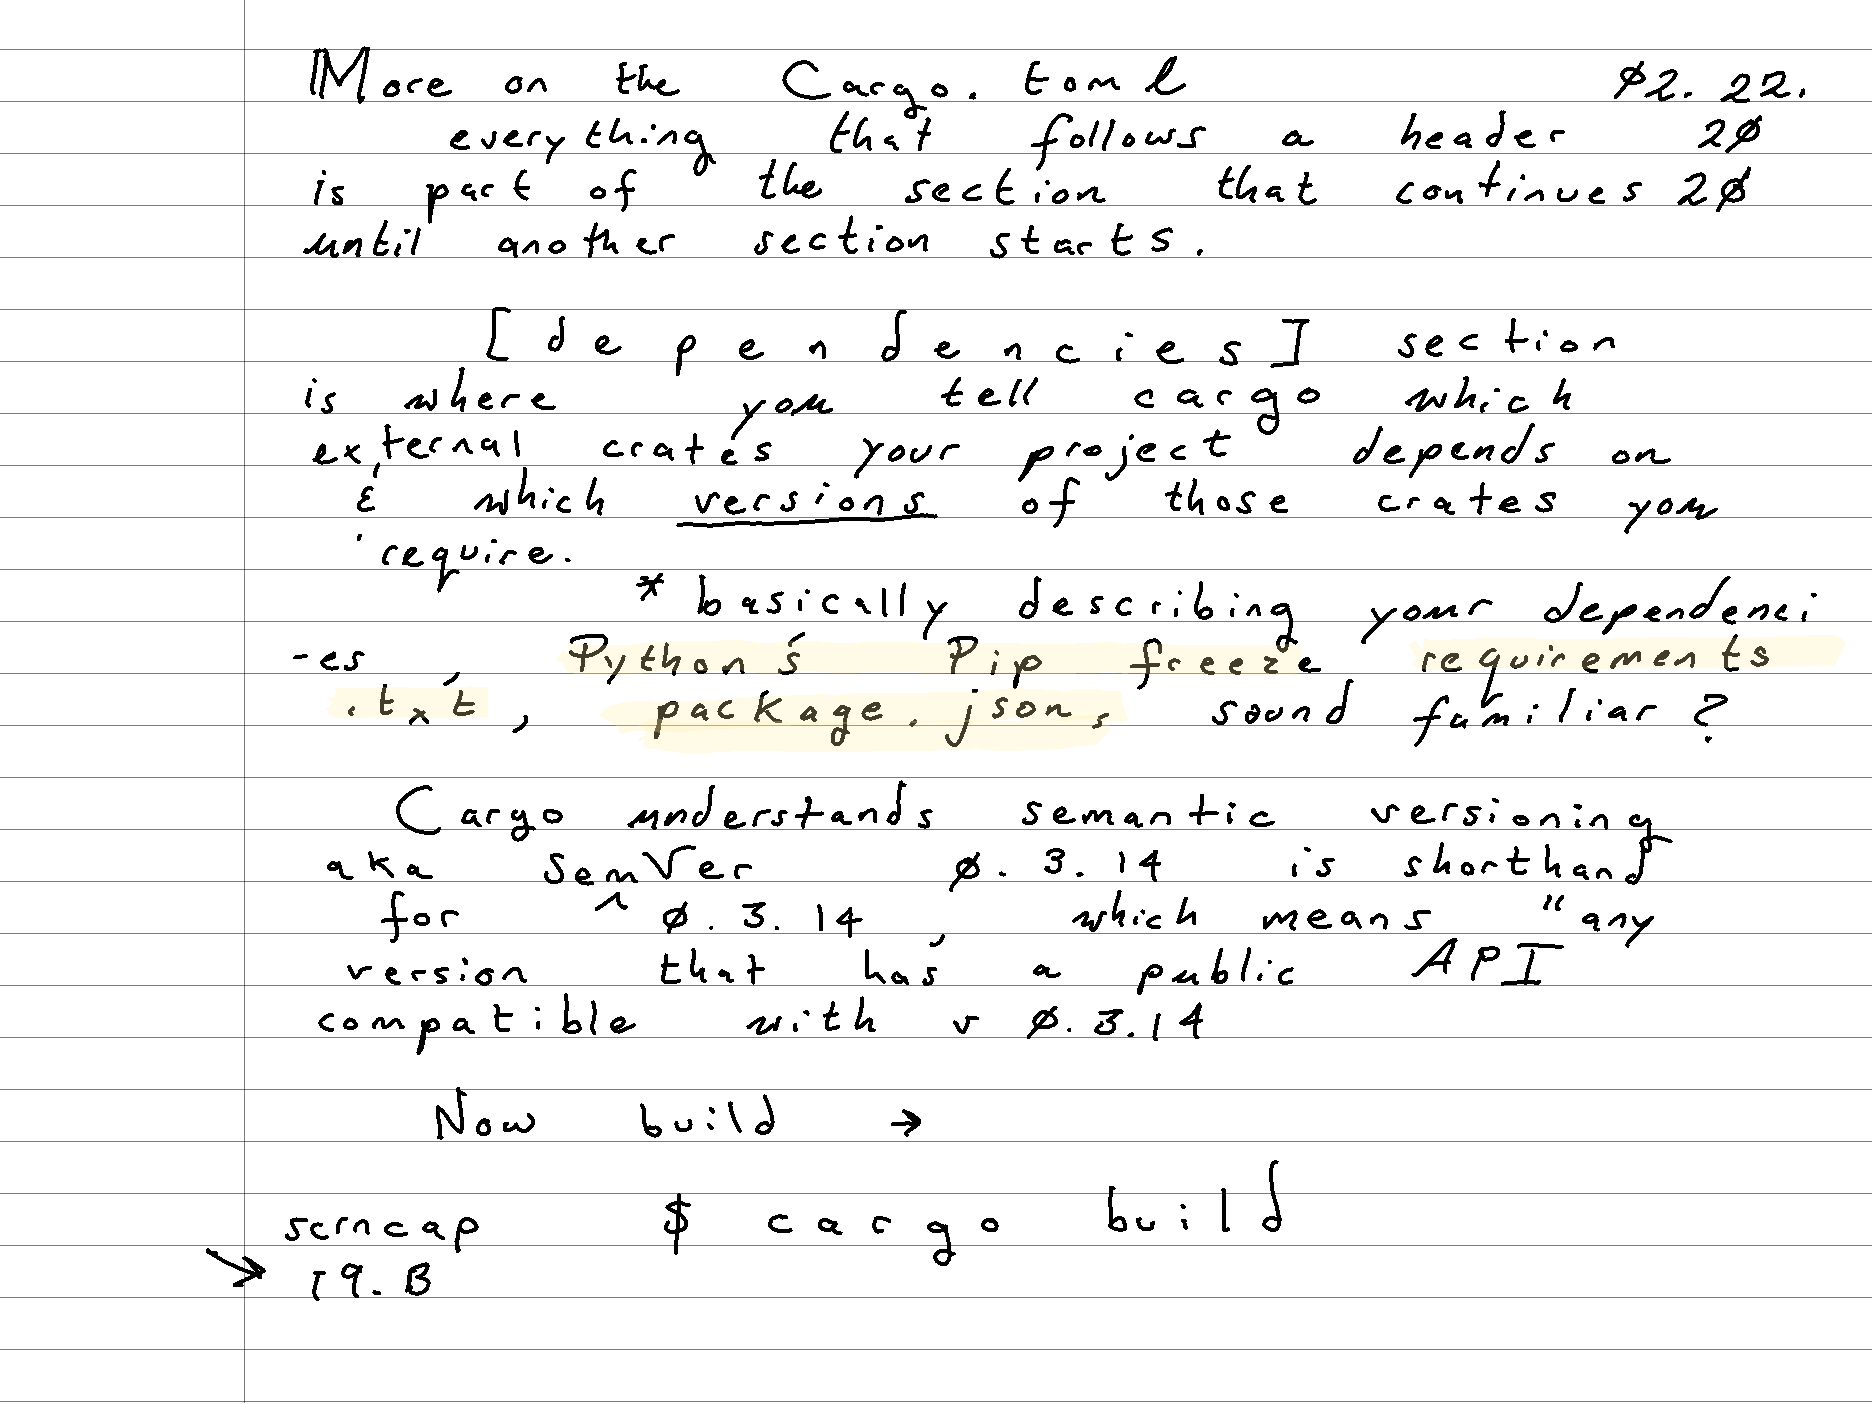 More on the Cargo.toml ø2.22.
everything that follows a header 2ø
is part of the section that continues 2ø
until another section starts.
[dependencies] section
is where you tell cargo which
external crates your project depends on
& which versions of those crates you
require.
* basically describing your dependenci
-es, Python's Pip freeze requirements
.txt, package.json, sound familiar?
Cargo understands semantic versioning
aka SemVer ø.3.14 is shorthand
for ^ ø.3.14, which means "any
version that has a public API
compatible with v ø.3.14
Now build →
scrncap $ cargo build
→ 19.B